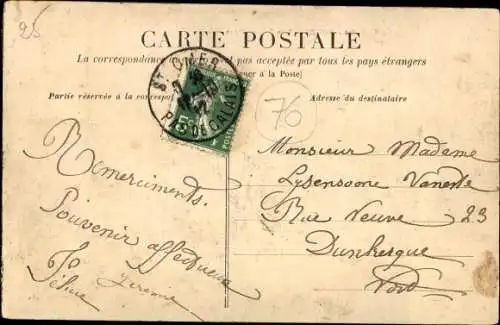 25
CARTE POSTALE
La correspondance pas acceptée par tous les pays étrangers
à la Poste)
Partie réservée à la correspo
Adresse du destinataire
ST OMER
PAS DE CALAIS
5
76
Monsieur Madame
Rue Neuve 23
Dunkerque
Nord
Remerciments.
Souvenir affectueux